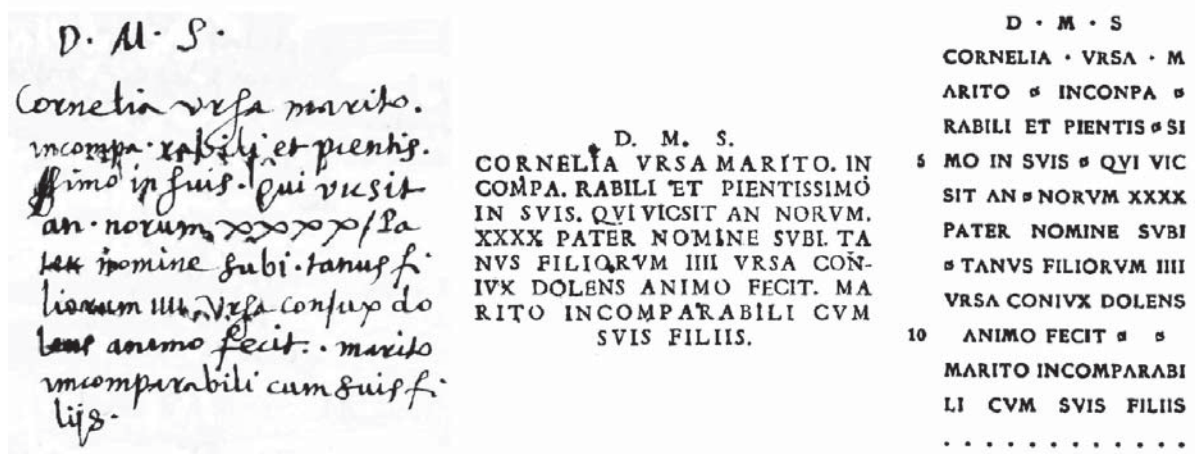 D. M. S.
Cornelia ursa marito.
incompa. rabili et pientis.
simo in suis. qui vicsit
an. norum, xxxx / Pa
ter nomine subi. tanus fi
liorum IIII, Ursa conjux do
lens animo fecit. . marito
incomparabili cum suis fi.
lijs.
D. M. S.
CORNELIA VRSA MARITO. IN
COMPA. RABILI ET PIENTISSIMO
IN SVIS. QVI VICSIT AN NORVM.
XXXX PATER NOMINE SVBI. TA
NVS FILIORVM IIII VRSA CON-
IVX DOLENS ANIMO FECIT. MA
RITO INCOMPARABILI CVM
SVIS FILIIS.
D · M · S
CORNELIA · VRSA · M
ARITO ¤ INCONPA ¤
RABILI ET PIENTIS ¤ SI
5 MO IN SVIS ¤ QVI VIC
SIT AN ¤ NORVM XXXX
PATER NOMINE SVBI
¤ TANVS FILIORVM IIII
VRSA CONIVX DOLENS
10 ANIMO FECIT ¤ ¤
MARITO INCOMPARABI
LI CVM SVIS FILIIS
. . . . . . . . . . . .